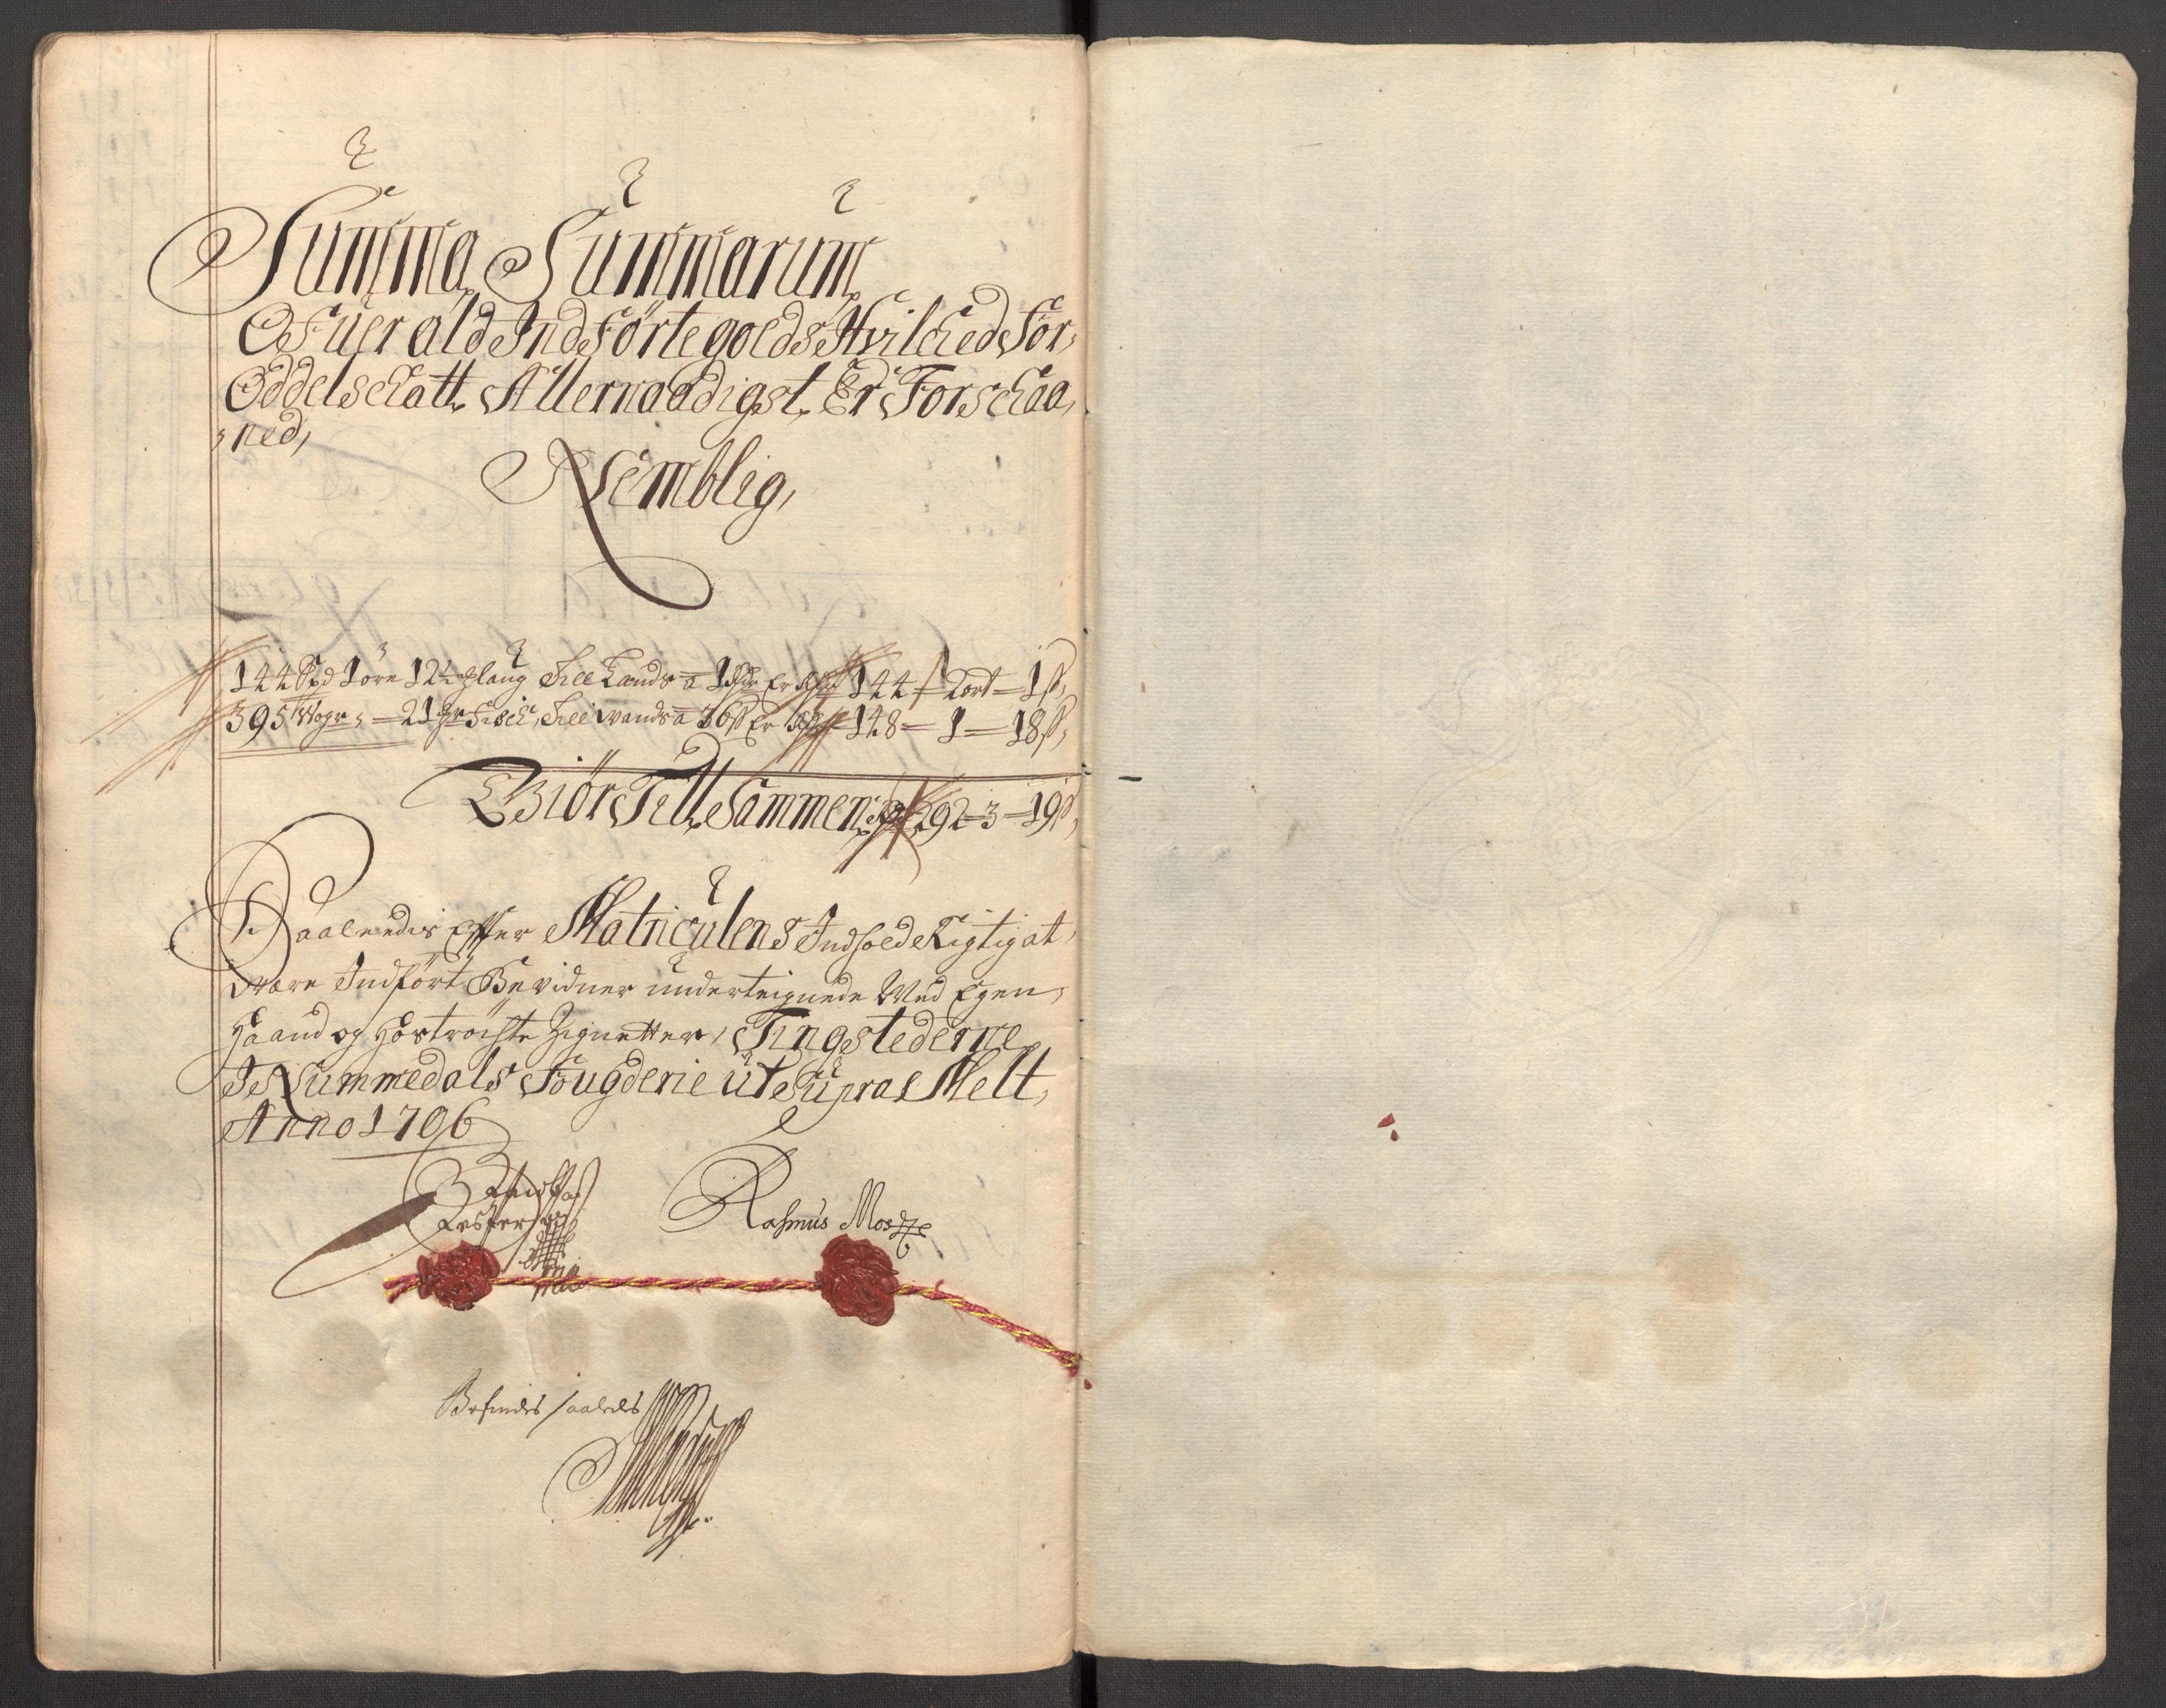 Summa Summarum
Ofuer ald Indförte goeds Hvilched for,
Oddelschatt, Allernaadigst, Er Forschaa,
,ned,
Nemblig,
144 Spd 1 öre 12½ Mlaug Till Lands a 1 Er 144 = 2 ort = 1 ß,
395 Woger, = 21 Fisch, Till wands a 36 ß Er 148 = 1 = 18 ß,
Giör Till Sammen 292 = 3 = 19 ß,
Saaledis Effter Matriculens Indhold Rigtig at,
Være Indfört Bevidner underteignede Med Egen,
Haand og Hoströchte Zignetter, Tingstederne
I Nummedals Fougderie ut Supra Melt,
Anno 1706
Rasmus Mos
Befindes saaledes